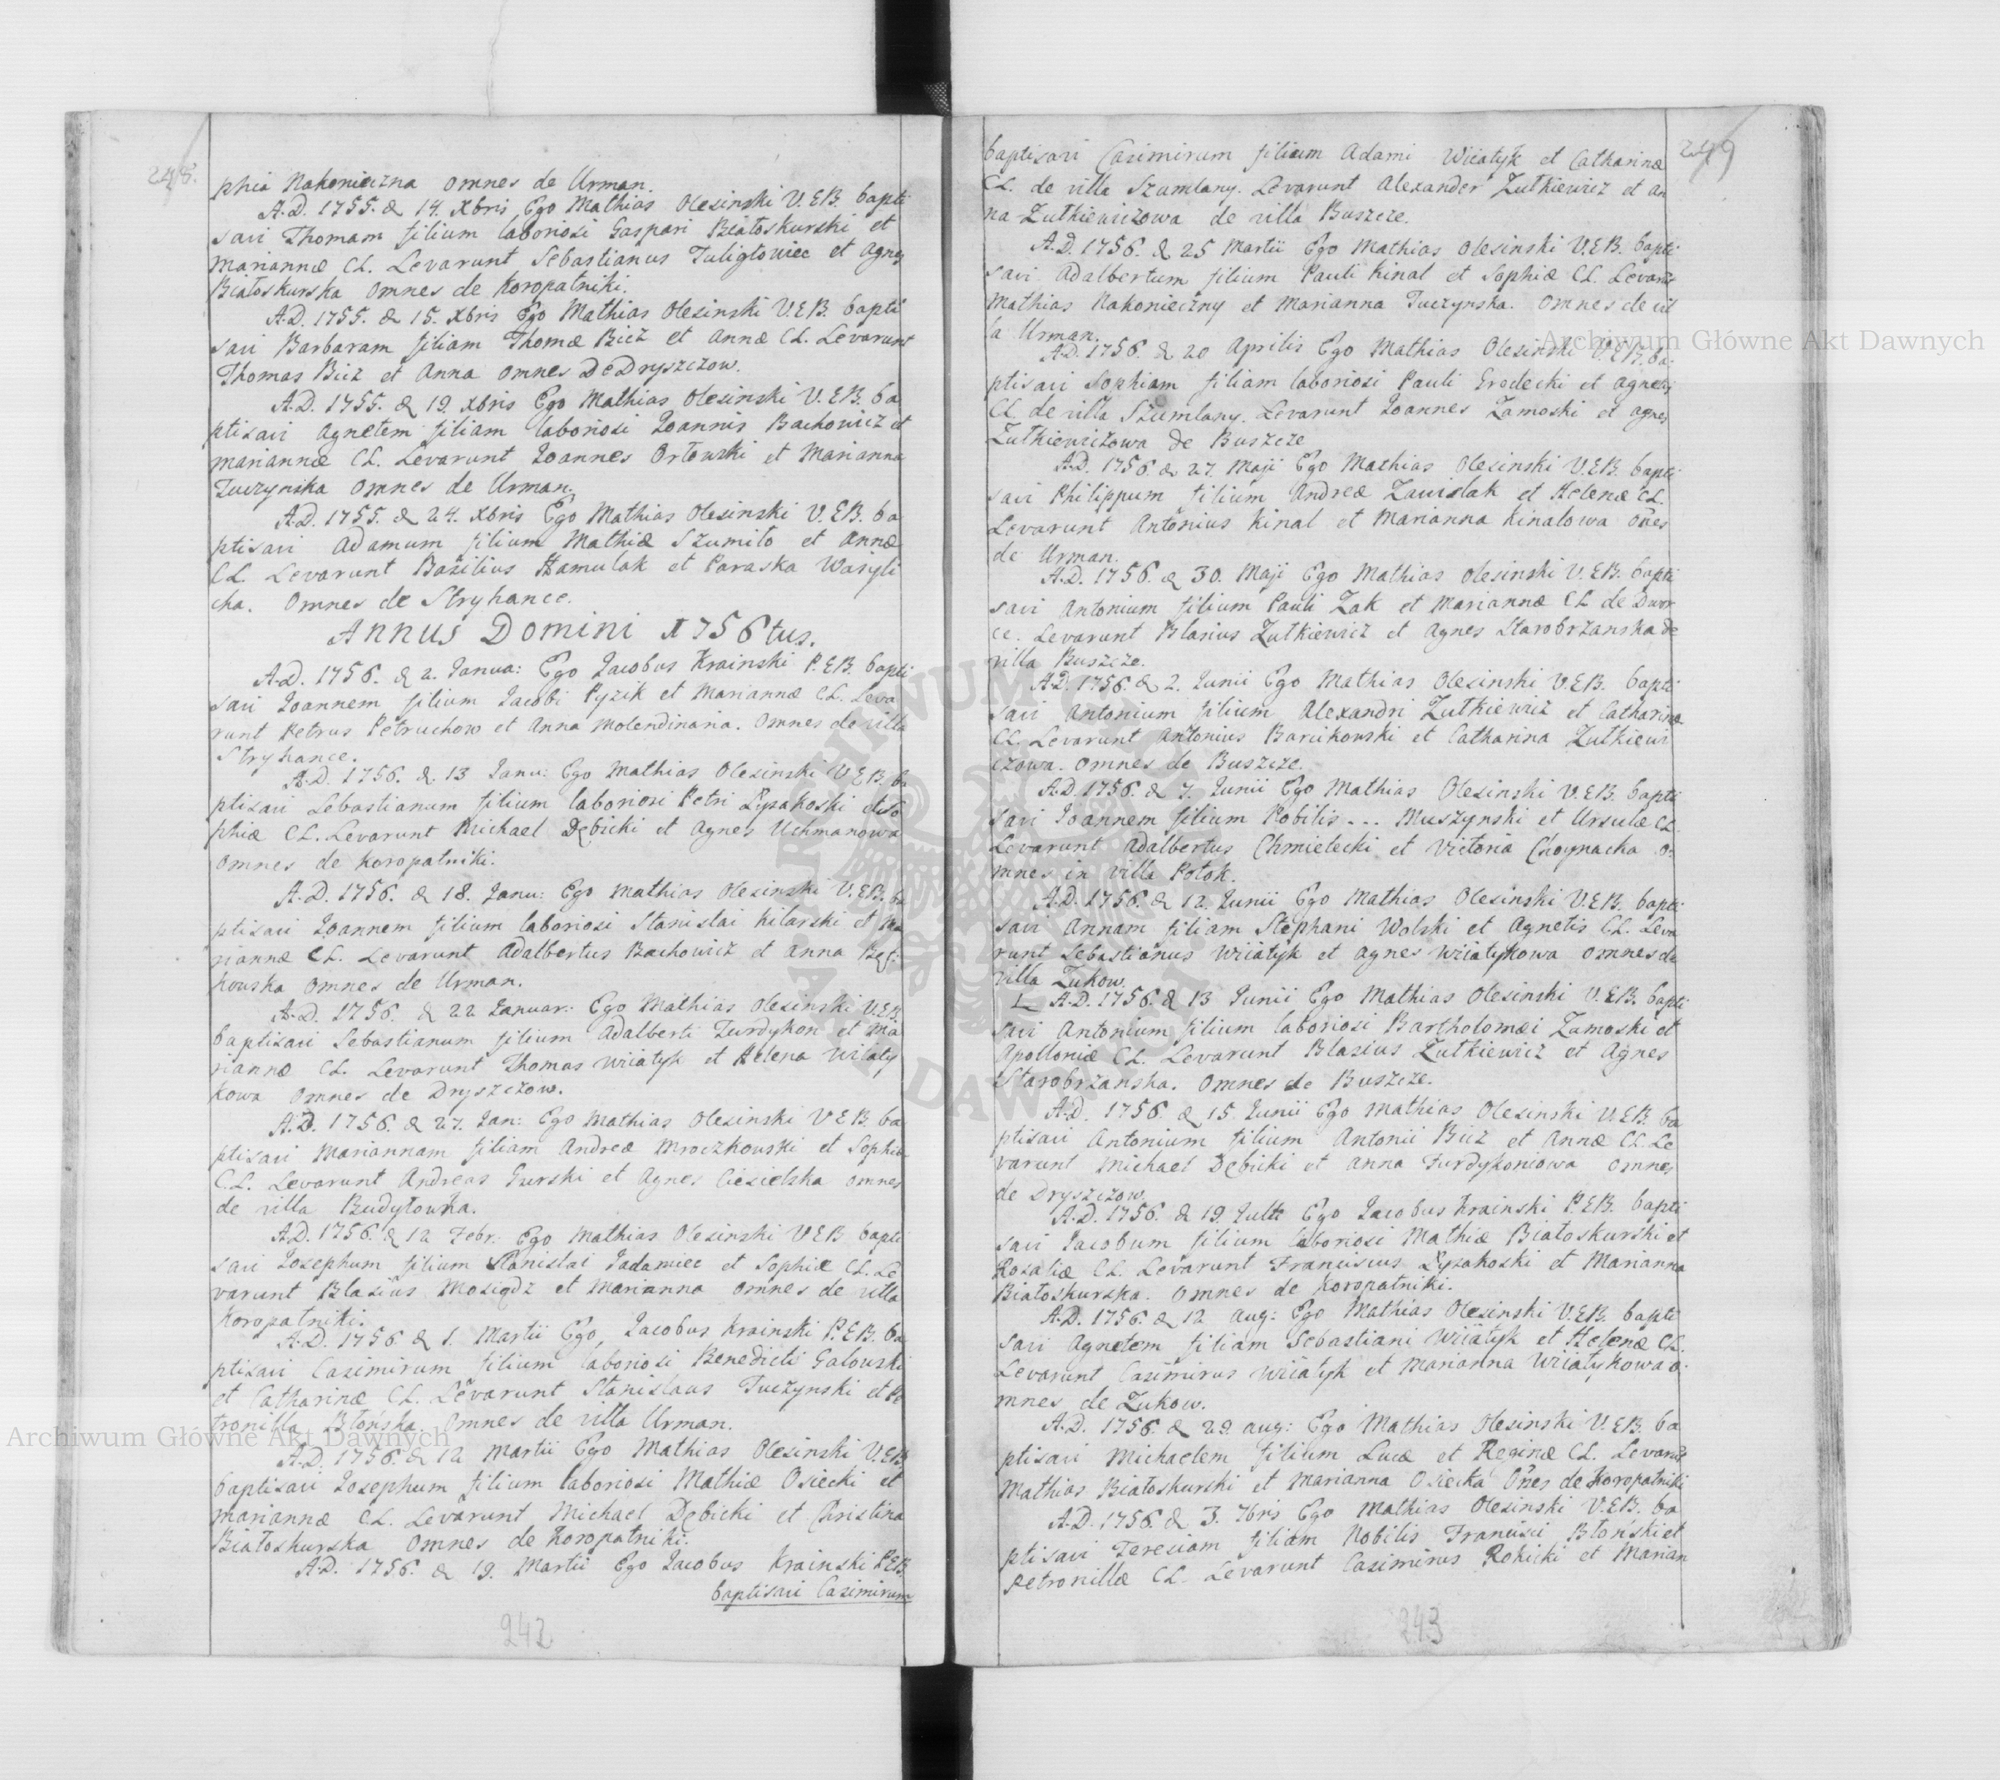 248.
phia Nakonieczna omnes de Urman.
A.D. 1755. d 14. Xbris Ego Mathias Olesinski V.EB. bapti
savi Thomam filium laboriosi Gaspari Białoskurski et
Mariannæ CL. Levarunt Sebastianus Tuligłowiec et Agnes
Białoskurska omnes de Koropatniki.
A.D. 1755. d 15. Xbris Ego Mathias Olesinski V.EB. bapti
savi Barbaram filiam Thomæ Bicz et Annæ CL. Levarunt
Thomas Bicz et Anna omnes De Dryszczow.
A.D. 1755. d 19. Xbris Ego Mathias Olesinski V.EB. ba
ptisavi Agnetem filiam laboriosi Ioannis Bachowicz et
Mariannæ CL. Levarunt Ioannes Orłowski et Marianna
Tuczynska omnes de Urman.
A.D. 1755. d 24. Xbris Ego Mathias Olesinski V.EB. ba
ptisavi Adamum filium Mathiæ Szumiło et Annæ
CL. Levarunt Basilius Hamulak et Paraska Wasyli
cha. Omnes de Stryhance.
Annus Domini 1756tus.
A.D. 1756. d 2. Ianua: Ego Iacobus Krainski P.EB. bapti
savi Ioannem filium Iacobi Pyzik et Mariannæ CL. Leva
runt Petrus Petruchow et Anna Molendinaria. Omnes de villa
Stryhance.
A.D. 1756. d 13 Ianu: Ego Mathias Olesinski V.EB. ba
ptisavi Sebastianum filium laboriosi Petri Łysakoski et So
phiæ CL. Levarunt Michael Dębicki et Agnes Uchmanowa
omnes de Koropatniki.
A.D. 1756. d 18. Ianu: Ego Mathias Olesinski V.EB. ba
ptisavi Ioannem filium laboriosi Stanislai Kilarski et Ma
riannæ CL. Levarunt Adalbertus Bachowicz et Anna
kowska omnes de Urman.
A.D. 1756. d 22 Ianuar: Ego Mathias Olesinski V.EB.
baptisavi Sebastianum filium Adalberti Furdykon et Ma
riannæ CL. Levarunt Thomas Wiiatyk et Helena Wiiaty
kowa omnes de Dryszczow.
A.D. 1756. d 27. Ian: Ego Mathias Olesinski V.EB. ba
ptisavi Mariannam filiam Andreæ Mroczkowski et Sophiæ
CL. Levarunt Andreas Gurski et Agnes Ciesielska omnes
de villa Budyłowka.
A.D. 1756. d 12 Febr: Ego Mathias Olesinski V.EB. bapti
savi Iosephum filium Stanislai Iadamiec et Sophiæ CL. Le
varunt Blasius Mosiądz et Marianna omnes de villa
Koropatniki.
A.D. 1756 d 1. Martii Ego, Iacobus Krainski P.EB. ba
ptisavi Casimirum filium laboriosi Benedicti Galowski
et Catharinæ CL. Levarunt Stanislaus Tuczynski et Pe
tronilla Błońska omnes de villa Urman.
A.D. 1756. d 12 Martii Ego Mathias Olesinski V.EB.
baptisavi Iosephum filium laboriosi Mathiæ Osiecki et
Mariannæ CL. Levarunt Michael Dębicki et Christina
Białoskurska omnes de Koropatniki.
A.D. 1756. d 19. Martii Ego Iacobus Krainski P.EB.
baptisavi Casimirum
242
249
baptisavi Casimirum filium Adami Wiiatyk et Catharinæ
CL. de villa Szumlany. Levarunt Alexander Zutkiewicz et An
na Zutkiewiczowa de villa Buszcze.
A.D. 1756. d 25 Martii Ego Mathias Olesinski V.EB. bapti
savi Adalbertum filium Pauli Kinal et Sophiæ CL. Levarūt
Mathias Nakonieczny et Marianna Tuczynska. Omnes de vil
la Urman.
A.D. 1756. d 20 Aprilis Ego Mathias Olesinski V.EB. ba
ptisavi Sophiam filiam laboriosi Pauli Grodecki et Agnetis
CL. de villa Szumlany. Levarunt Ioannes Zamoski et Agnes
Zutkiewiczowa de Buszcze
A.D. 1756 d 27. Maji Ego Mathias Olesinski V.EB. bapti
savi Philippum filium Andreæ Zawislak et Helenæ CL.
Levarunt Antonius Kinal et Marianna Kinalowa oēs
de Urman.
A.D. 1756. d 30. Maji Ego Mathias Olesinski V.EB. bapti
savi Antonium filium Pauli Zak et Mariannæ CL de Dwor
ce. Levarunt Blasius Zutkiewicz et Agnes Starobrzanska de
villa Buszcze.
A.D. 1756. d 2. Iunii Ego Mathias Olesinski V.EB. bapti
savi Antonium filium Alexandri Zutkiewicz et Catharinæ
CL. Levarunt Antonius Barcikowski et Catharina Zutkiewi
czowa. Omnes de Buszcze.
A.D. 1756. d 7. Iunii Ego Mathias Olesinski V.EB. bapti
savi Ioannem filium Nobilis . . . Muszynski et Ursulæ CL.
Levarunt Adalbertus Chmielecki et Victoria Choynacka o:
mnes in villa Potok.
A.D. 1756. d 12. Iunii Ego Mathias Olesinski V.EB. bapti
savi Annam filiam Stephani Wolski et Agnetis CL. Leva
runt Sebastianus Wiiatyk et Agnes Wiiatykowa omnes de
villa Zukow.
A.D. 1756. d 13 Iunii Ego Mathias Olesinski V.EB. bapti
savi Antonium filium laboriosi Bartholomæi Zamoski et
Apolloniæ CL. Levarunt Blasius Zutkiewicz et Agnes
Starobrzanska. Omnes de Buszcze.
A.D. 1756. d 15 Iunii Ego Mathias Olesinski V.EB. ba
ptisavi Antonium filium Antonii Bicz et Annæ CL. Le
varunt Michael Dębicki et Anna Furdykoniowa omnes
de Dryszczow.
A.D. 1756. d 19. Ego Iacobus Krainski P.EB. bapti
savi Iacobum filium laboriosi Mathiæ Białoskurski et
Rozaliæ CL. Levarunt Franciscus Łysakoski et Marianna
Białoskurska. Omnes de Koropatniki.
A.D. 1756. d 12 Aug: Ego Mathias Olesinski V.EB. bapti
savi Agnetem filiam Sebastiani Wiiatyk et Helenæ CL.
Levarunt Casimirus Wiiatyk et Marianna Wiiatykowa o:
mnes de Zukow.
A.D. 1756. d 29. Aug: Ego Mathias Olesinski V.EB. ba
ptisavi Michaelem filium Lucæ et Reginæ CL. Levarūt
Mathias Białoskurski et Marianna Osiecka Oēs de Koropatniki
A.D. 1756. d 3. 7bris Ego Mathias Olesinski V.EB. ba
ptisavi Teresiam filiam Nobilis Francisci Błoński et
Petronillæ CL. Levarunt Casimirus Rokicki et Marian
243
Archiwum Główne Akt Dawnych
Archiwum Główne Akt Dawnych
ARCHIWUM GŁÓWNE AKT DAWNYCH